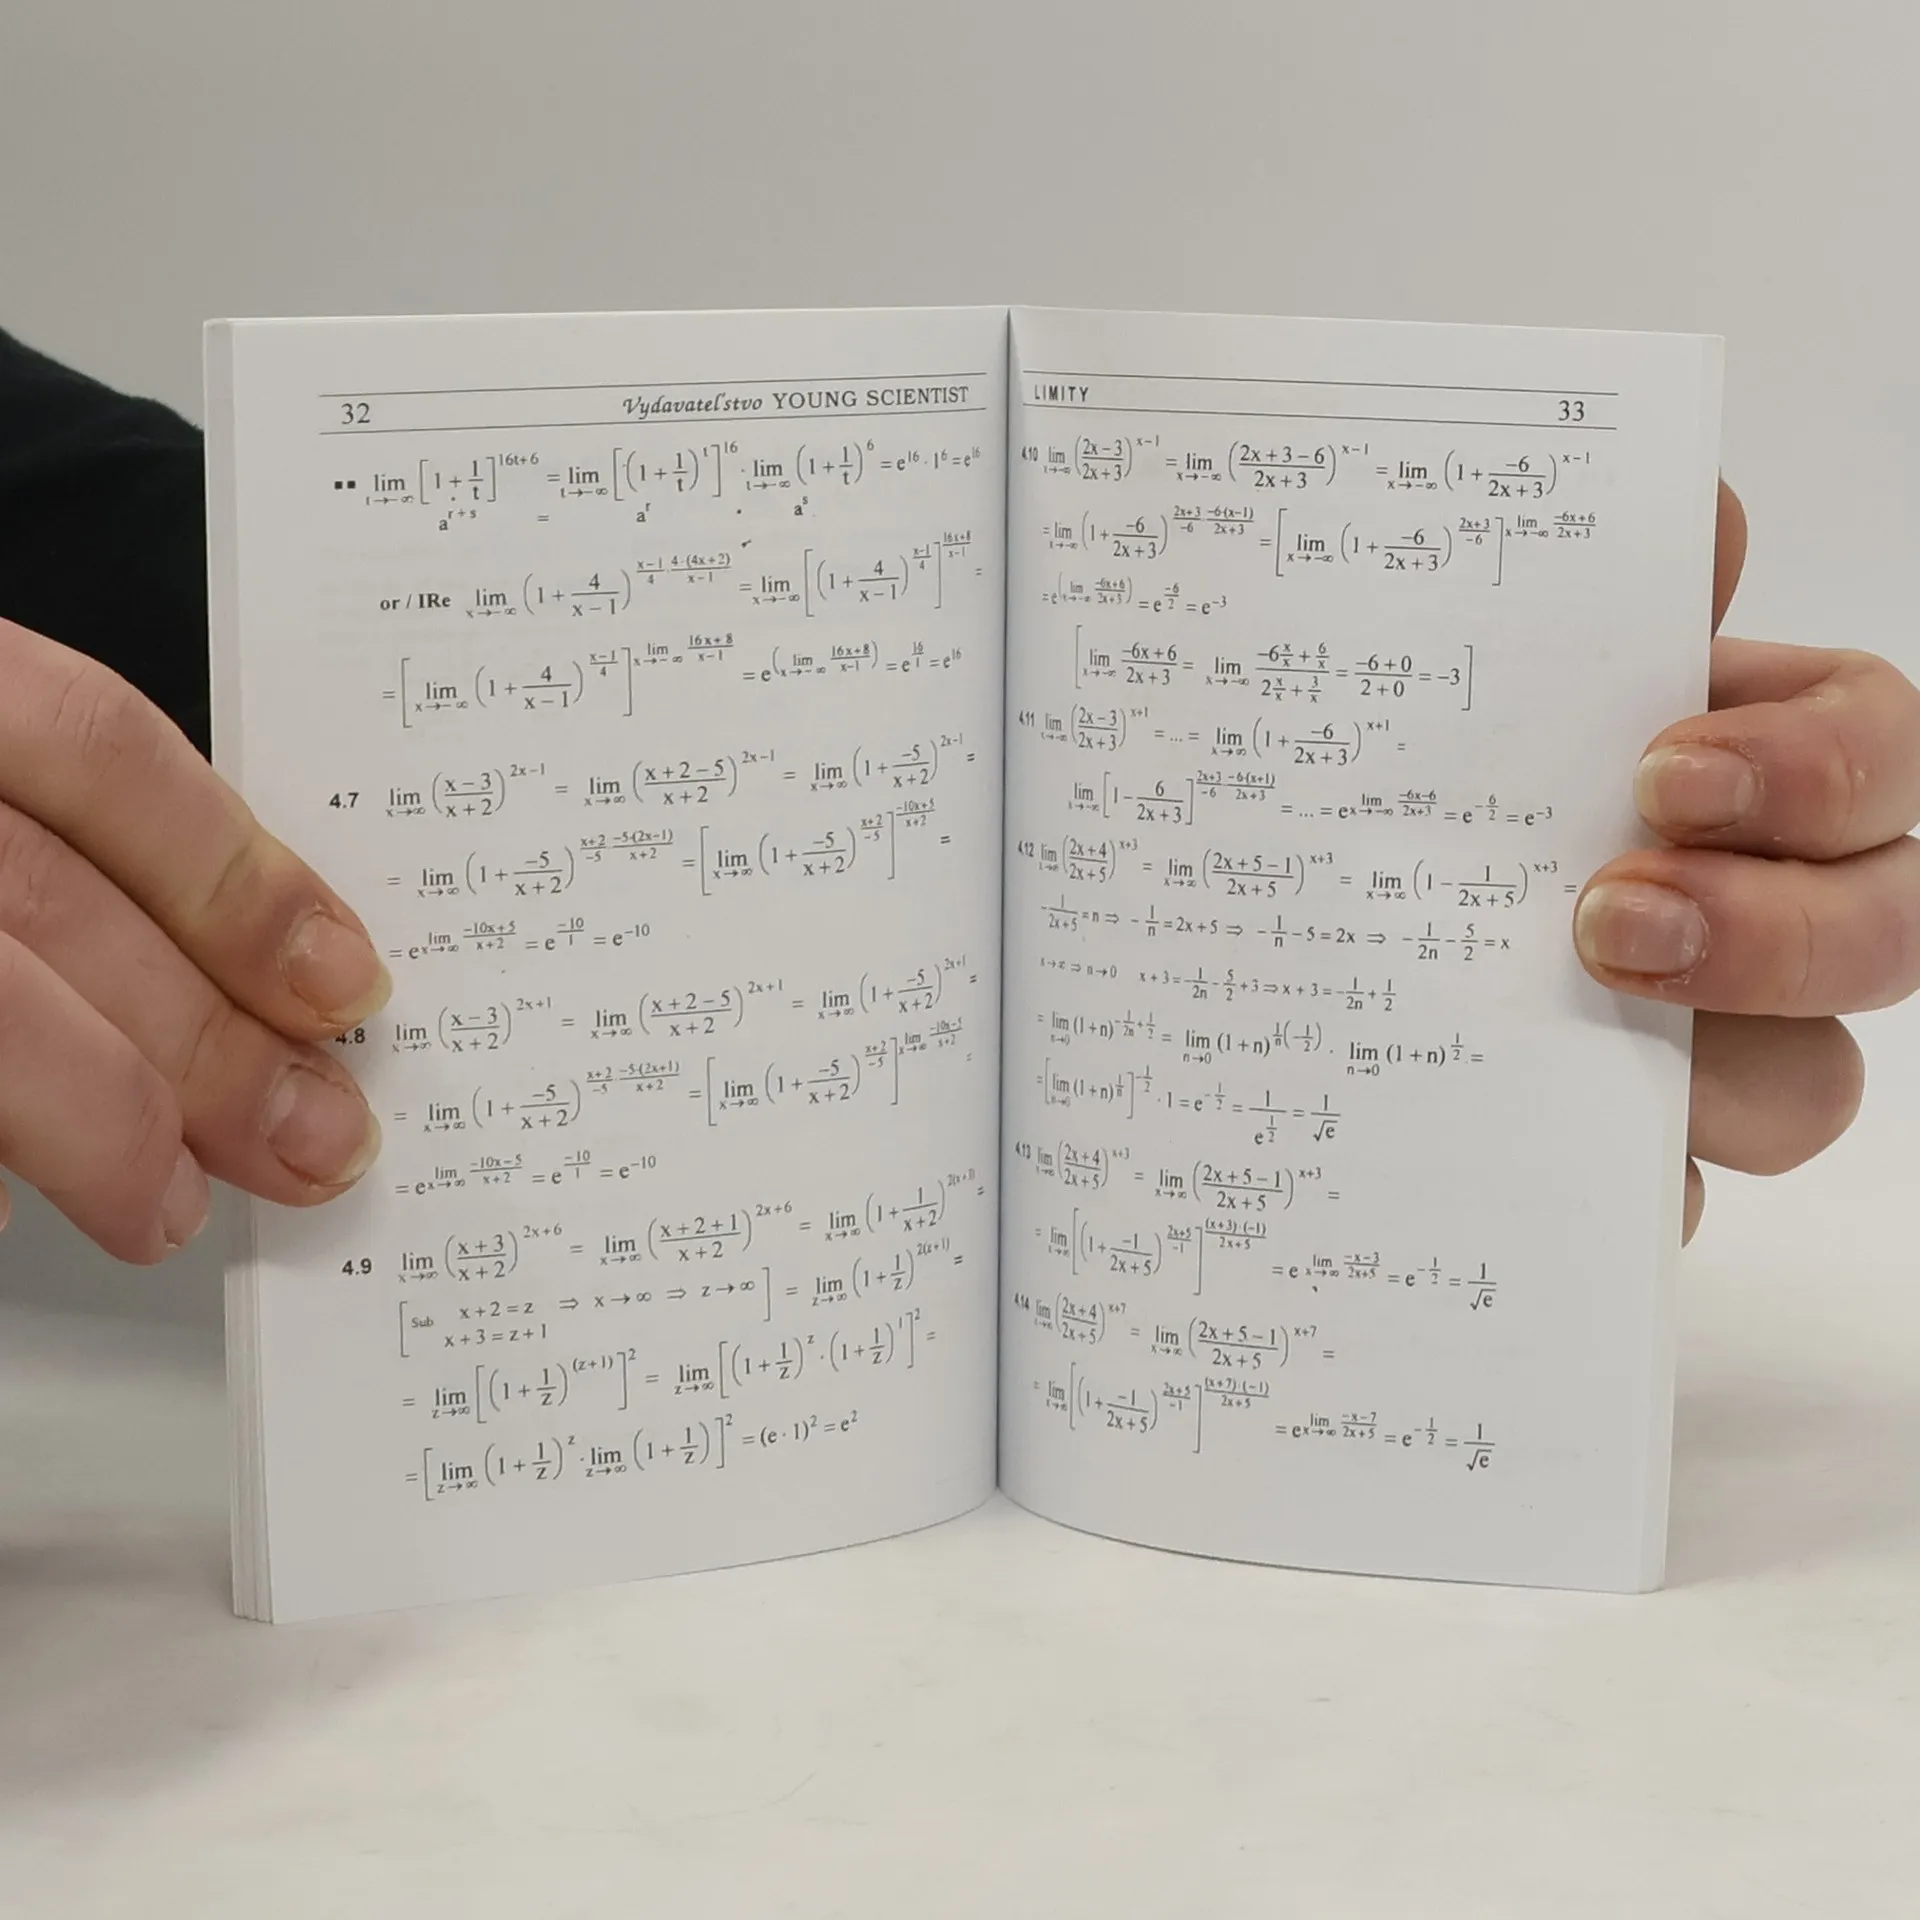 32 Vydavateľstvo YOUNG SCIENTIST
▪▪ lim t→−∞ [1 + 1/t]^(16t+6) = lim t→−∞ [(1 + 1/t)^t]^16 · lim t→−∞ (1 + 1/t)^6 = e^16 · 1^6 = e^16
a^(r+s) = a^r · a^s
or / IRe lim x→−∞ (1 + 4/(x−1))^((x−1)/4 · 4·(4x+2)/(x−1)) = lim x→−∞ [(1 + 4/(x−1))^((x−1)/4)]^((16x+8)/(x−1)) =
= [lim x→−∞ (1 + 4/(x−1))^((x−1)/4)]^(lim x→−∞ (16x+8)/(x−1)) = e^(lim x→−∞ (16x+8)/(x−1)) = e^(16/1) = e^16
4.7 lim x→∞ ((x−3)/(x+2))^(2x−1) = lim x→∞ ((x+2−5)/(x+2))^(2x−1) = lim x→∞ (1 + −5/(x+2))^(2x−1) =
= lim x→∞ (1 + −5/(x+2))^((x+2)/−5 · −5·(2x−1)/(x+2)) = [lim x→∞ (1 + −5/(x+2))^((x+2)/−5)]^((−10x+5)/(x+2)) =
= e^(lim x→∞ (−10x+5)/(x+2)) = e^(−10/1) = e^−10
4.8 lim x→∞ ((x−3)/(x+2))^(2x+1) = lim x→∞ ((x+2−5)/(x+2))^(2x+1) = lim x→∞ (1 + −5/(x+2))^(2x+1) =
= lim x→∞ (1 + −5/(x+2))^((x+2)/−5 · −5·(2x+1)/(x+2)) = [lim x→∞ (1 + −5/(x+2))^((x+2)/−5)]^(lim x→∞ (−10x−5)/(x+2)) =
= e^(lim x→∞ (−10x−5)/(x+2)) = e^(−10/1) = e^−10
4.9 lim x→∞ ((x+3)/(x+2))^(2x+6) = lim x→∞ ((x+2+1)/(x+2))^(2x+6) = lim x→∞ (1 + 1/(x+2))^(2(x+3)) =
[Sub x+2=z ⇒ x→∞ ⇒ z→∞
x+3=z+1] = lim z→∞ (1 + 1/z)^(2(z+1)) =
= lim z→∞ [(1 + 1/z)^(z+1)]^2 = lim z→∞ [(1 + 1/z)^z · (1 + 1/z)^1]^2 =
= [lim z→∞ (1 + 1/z)^z · lim z→∞ (1 + 1/z)]^2 = (e · 1)^2 = e^2
LIMITY 33
4.10 lim x→−∞ ((2x−3)/(2x+3))^(x−1) = lim x→−∞ ((2x+3−6)/(2x+3))^(x−1) = lim x→−∞ (1 + −6/(2x+3))^(x−1)
= lim x→−∞ (1 + −6/(2x+3))^((2x+3)/−6 · −6·(x−1)/(2x+3)) = [lim x→−∞ (1 + −6/(2x+3))^((2x+3)/−6)]^(lim x→−∞ (−6x+6)/(2x+3))
= e^(lim x→−∞ (−6x+6)/(2x+3)) = e^(−6/2) = e^−3
[lim x→−∞ (−6x+6)/(2x+3) = lim x→−∞ (−6 x/x + 6/x)/(2 x/x + 3/x) = (−6+0)/(2+0) = −3]
4.11 lim x→−∞ ((2x−3)/(2x+3))^(x+1) = ... = lim x→∞ (1 + −6/(2x+3))^(x+1) =
lim x→−∞ [1 − 6/(2x+3)]^((2x+3)/−6 · −6·(x+1)/(2x+3)) = ... = e^(lim x→−∞ (−6x−6)/(2x+3)) = e^(−6/2) = e^−3
4.12 lim x→∞ ((2x+4)/(2x+5))^(x+3) = lim x→∞ ((2x+5−1)/(2x+5))^(x+3) = lim x→∞ (1 − 1/(2x+5))^(x+3) =
−1/(2x+5) = n ⇒ −1/n = 2x+5 ⇒ −1/n − 5 = 2x ⇒ −1/2n − 5/2 = x
x→∞ ⇒ n→0 x+3 = −1/2n − 5/2 + 3 ⇒ x+3 = −1/2n + 1/2
= lim n→0 (1+n)^(−1/2n + 1/2) = lim n→0 (1+n)^(1/n(−1/2)) · lim n→0 (1+n)^(1/2) =
= [lim n→0 (1+n)^(1/n)]^(−1/2) · 1 = e^(−1/2) = 1/e^(1/2) = 1/√e
4.13 lim x→∞ ((2x+4)/(2x+5))^(x+3) = lim x→∞ ((2x+5−1)/(2x+5))^(x+3) =
= lim x→∞ [(1 + −1/(2x+5))^((2x+5)/−1)]^((x+3)·(−1)/(2x+5)) = e^(lim x→∞ (−x−3)/(2x+5)) = e^(−1/2) = 1/√e
4.14 lim x→∞ ((2x+4)/(2x+5))^(x+7) = lim x→∞ ((2x+5−1)/(2x+5))^(x+7) =
= lim x→∞ [(1 + −1/(2x+5))^((2x+5)/−1)]^((x+7)·(−1)/(2x+5)) = e^(lim x→∞ (−x−7)/(2x+5)) = e^(−1/2) = 1/√e